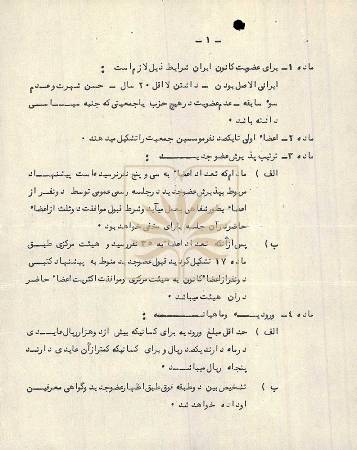 - ۱ -
ماده ۱ـ برای عضویت کانون ایران شرایط ذیل لازم است :
ایرانی الاصل بودن - داشتن لااقل ۲۰ سال - حسن شهرت وعدم
سوء سابقه - عدم عضویت در هیچ حزب یا جمعیتی که جنبه سیاسی
داشته باشد ۰
ماده ۲ـ اعضاء اولی تا یکصد نفر موسسین جمعیت را تشکیل میدهند ۰
ماده ۳ـ ترتیب پذیرش عضو جدید :
الف ) مادام که تعداد اعضاء به سی و پنج نفر نرسیده است پیشنهاد
مربوط بپذیرش عضو جدید در جلسه رسمی عمومی توسط دو نفر از
اعضاء بطور بعمل میآید و شرط قبول موافقت دو ثلث از اعضاء
حاضر در آن جلسه با رای مخفی خواهد بود ۰
ب ) پس از آنکه تعداد اعضاء به ۳۵ نفر رسید و هیئت مرکزی طبق
ماده ۱۷ تشکیل گردید قبول عضو جدید منوط به پیشنهاد کتبی
دو نفر از اعضاء کانون به هیئت مرکزی و موافقت اکثریت اعضاء حاضر
در آن هیئت میباشد ۰
ماده ۴ـ ورودیه وماهیانه :
الف ) حد اقل مبلغ ورودیه برای کسانیکه بیش از دو هزار ریال عایدی
در ماه دارند یکصد ریال و برای کسانیکه کمتر از آن عایدی دارند
پنجاه ریال میباشد ۰
ب ) تشخیص بین دو طبقه فوق طبق اظهار عضو جدید و گواهی معرفین
او داده خواهد شد ۰